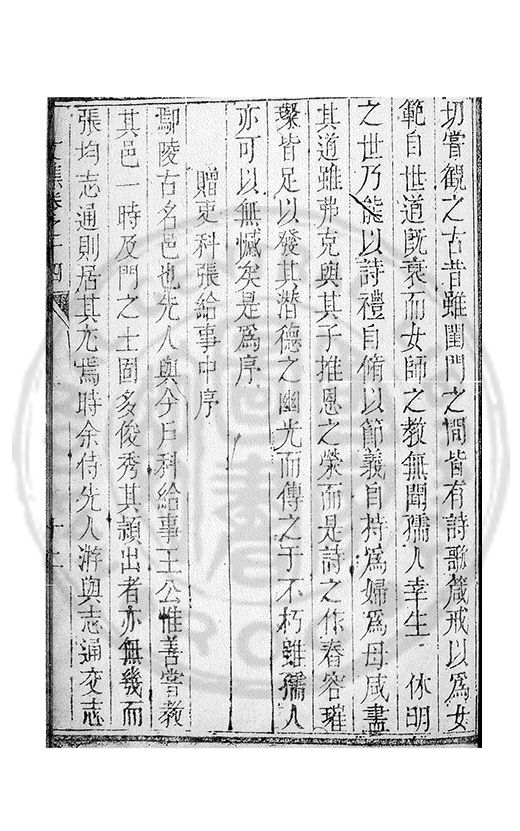 切嘗觀之古昔雖閨門之間皆有詩歌箴戒以為女
範自世道既衰而女師之教無聞孺人幸生 休明
之世乃能以詩禮自脩以節義自持為婦為母咸盡
其道雖弗克與其子推恩之榮而是詩之作舂容璀
璨皆足以發其潛德之幽光而傳之于不朽雖孺人
亦可以無憾矣是為序
贈吏科張給事中序
鄢陵古名邑也先人與今戶科給事王公惟善嘗教
其邑一時及門之士固多俊秀其頴出者亦無幾而
張均志通則居其尤焉時余侍先人游與志通交志
文集卷之十四